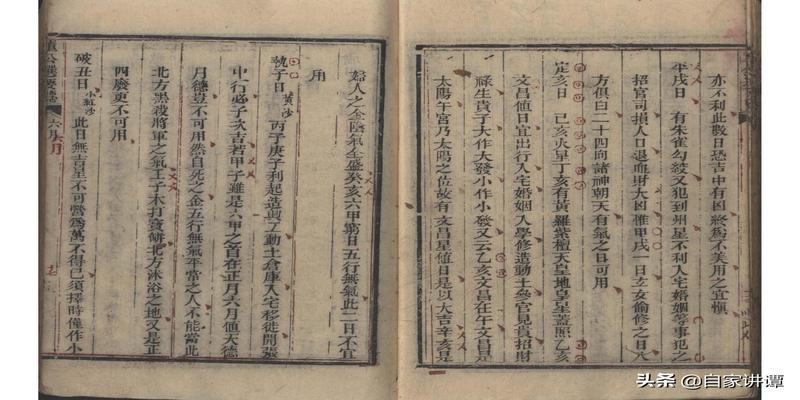 亦不利此數日恐吉中有凶終爲不美用之宜愼
平戌日 有朱雀勾絞又犯到州星不利入宅婚姻等事犯之
招官司損人口退血財大凶惟甲戌一日玄女偷修之日八
方俱白二十四向諸神朝天有氣之日可用
定亥日 己亥火星丁亥有黃羅紫檀天皇地皇星蓋照乙亥
文昌值日宜出行入宅婚姻入學修造動土參官見貴招財
祿生貴子大作大發小作小發又云乙亥文昌在午文昌是
太陽午宮乃太陽之位故有文昌星值日是以大吉辛亥是
婦人之金陰氣全盛癸亥六甲窮日五行無氣此二日不宜
用
執子日 黃沙 丙子庚子利起造興工動土倉庫入宅移徙開張
中行必子次吉若甲子雖是六甲之首在正月六月值天德
月德豈不可用然自死之金五行無氣平常之人不能當此
北方黑殺將軍之氣壬子木打寶餅北方沐浴之地又是正
四廢更不可用
破丑日 小紅沙 此日無吉星不可營爲萬不得已須擇時僅作小
六月
头条 @自家讲谭